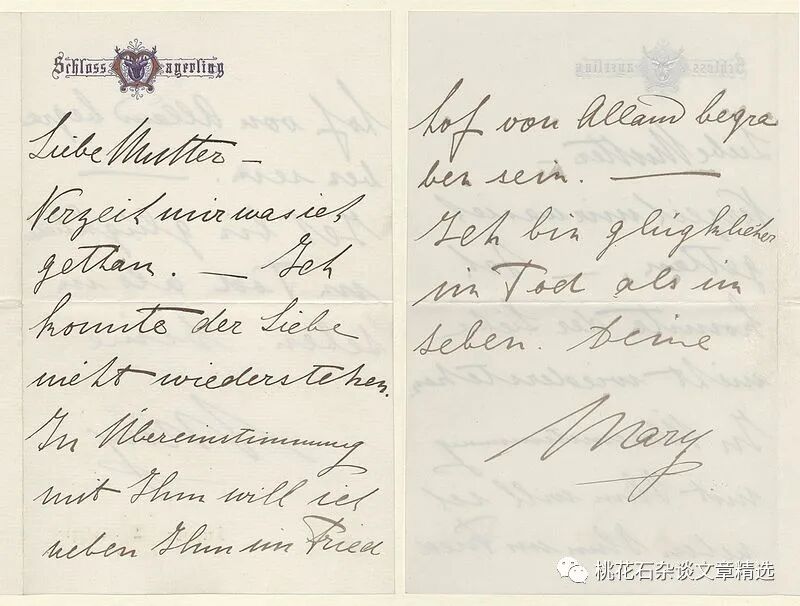 Schloss Mayerling
Liebe Mutter –
Verzeih mir was ich
gethan. – Ich
konnte der Liebe
nicht wiederstehen.
In Übereinstimmung
mit Ihm will ich
neben Ihm im Fried
hof von Alland begra
ben sein. —
Ich bin glücklicher
im Tod als im
Leben. Deine
Mary
桃花石杂谈文章精选